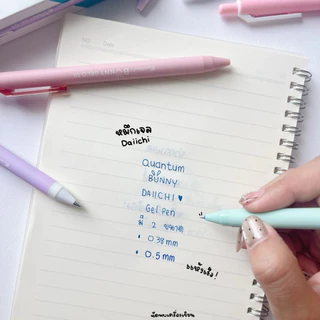 หมึกเจล
Daiichi
Quantum
BUNNY
DAIICHI ♥
Gel Pen
มี 2 ขนาด
• 0.38 mm
• 0.5 mm